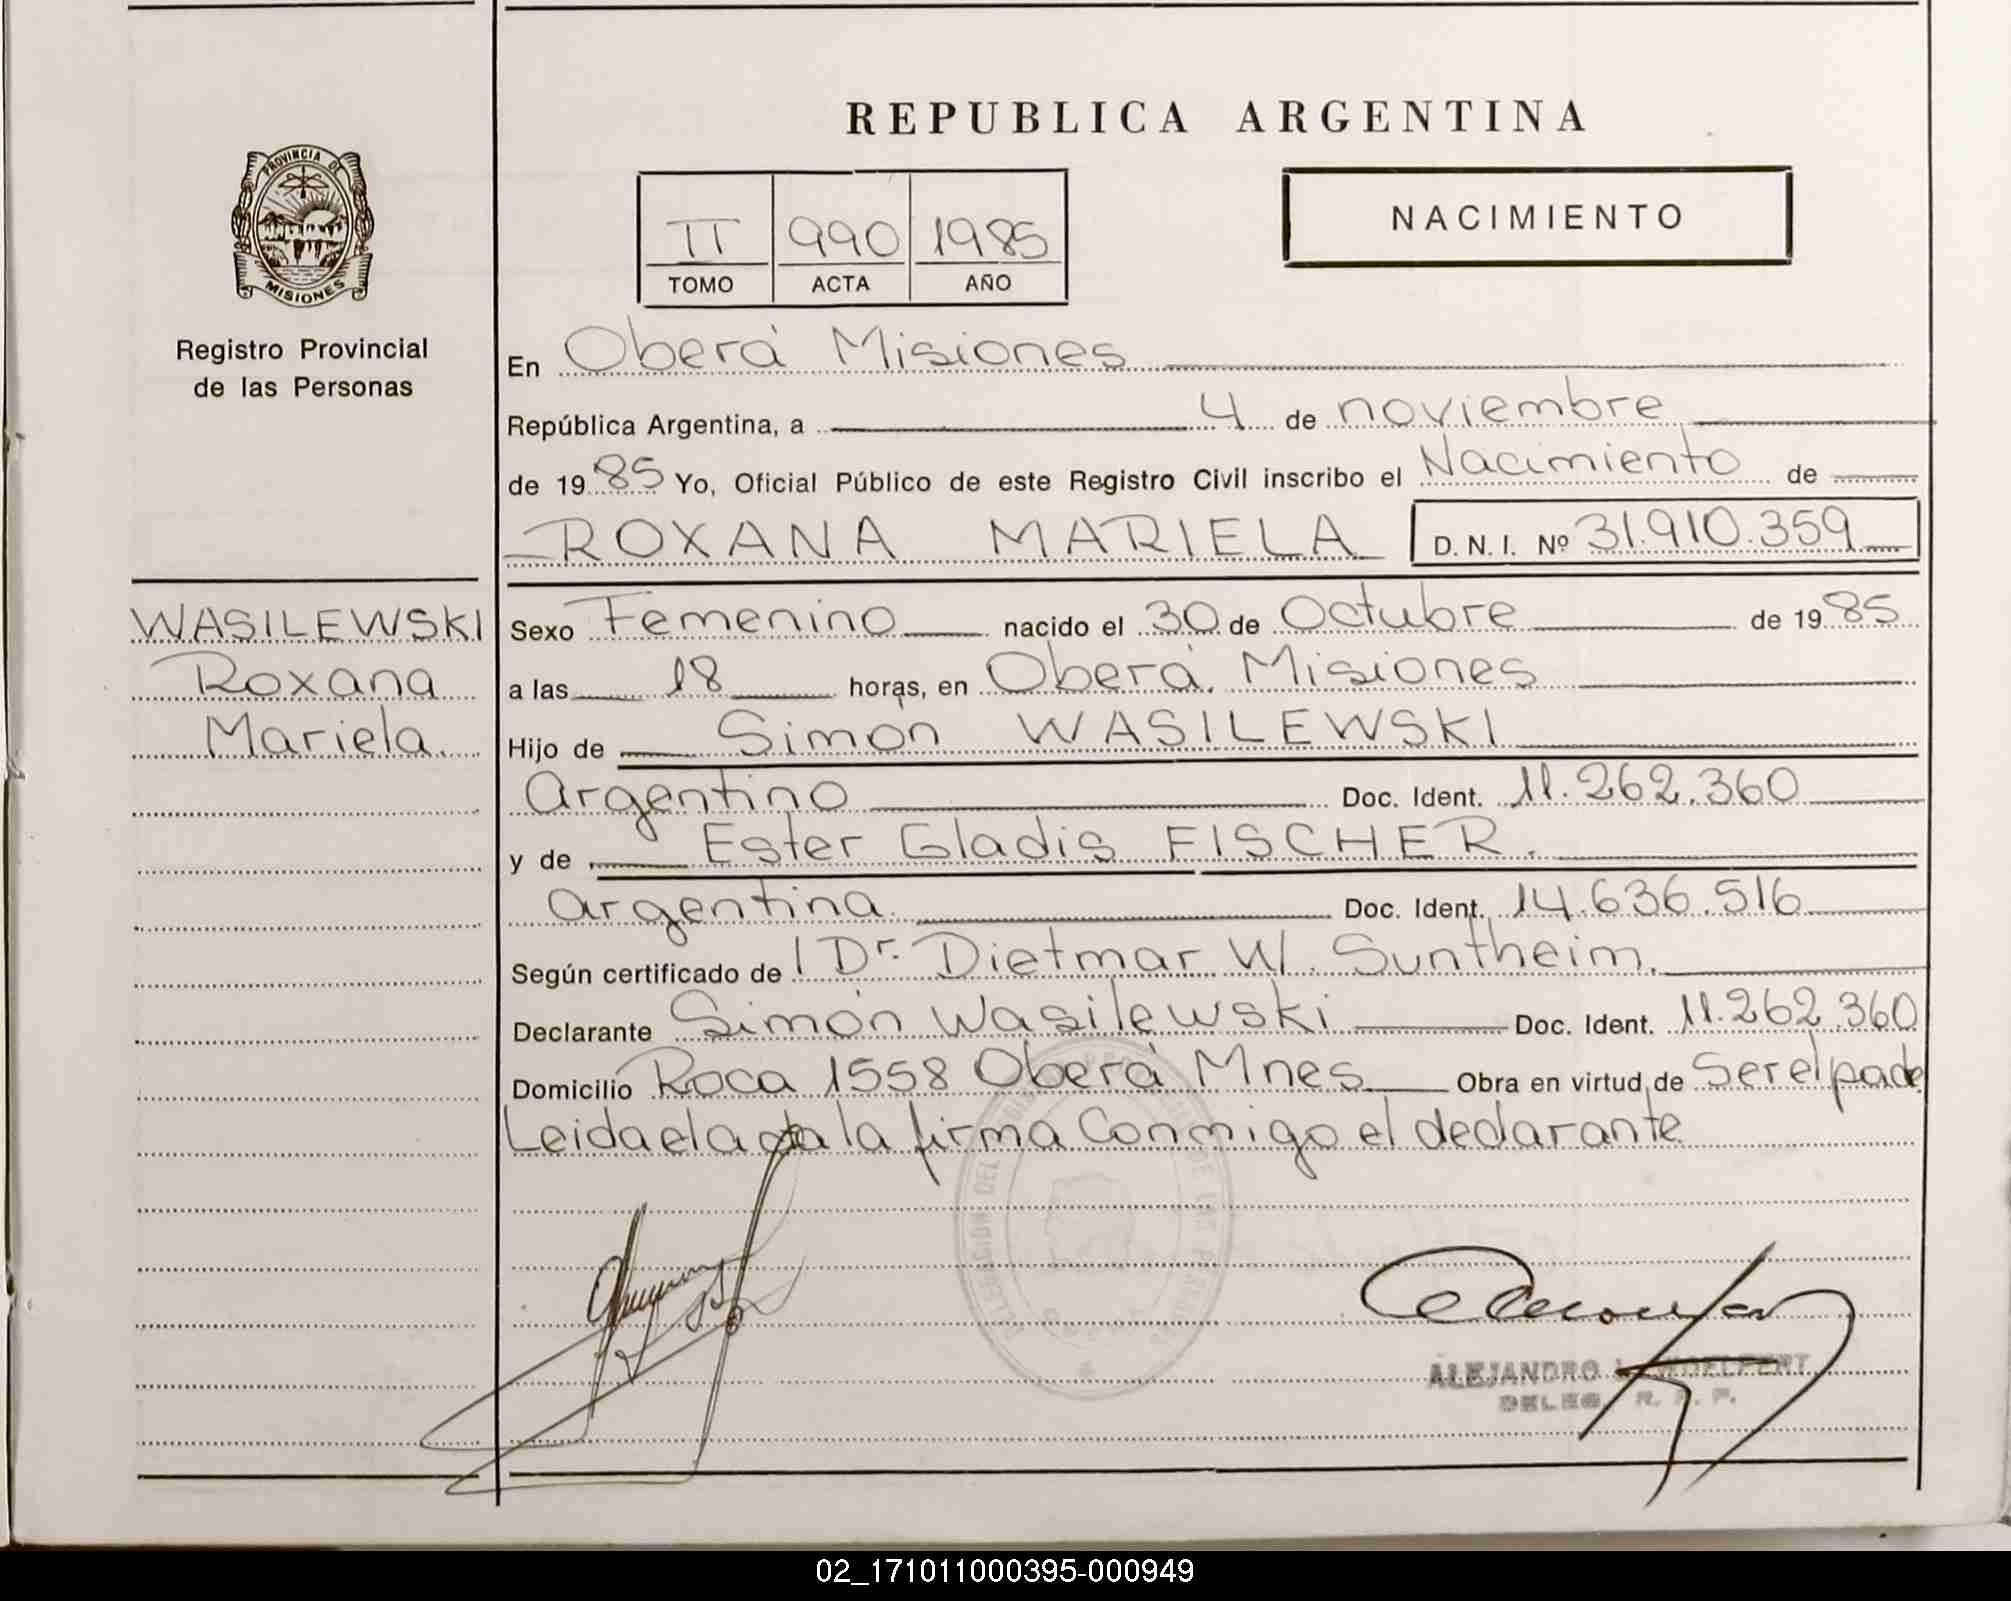 REPUBLICA ARGENTINA
PROVINCIA DE MISIONES
Registro Provincial
de las Personas
II 990 1985
TOMO ACTA AÑO
NACIMIENTO
En Oberá Misiones
República Argentina, a 4 de noviembre
de 1985 Yo, Oficial Público de este Registro Civil inscribo el Nacimiento de
ROXANA MARIELA D. N. I. Nº 31.910.359
WASILEWSKI
Roxana
Mariela.
Sexo Femenino nacido el 30 de Octubre de 1985
a las 18 horas, en Oberá. Misiones
Hijo de Simón WASILEWSKI
Argentino Doc. Ident. 11.262.360
y de Ester Gladis FISCHER.
Argentina. Doc. Ident. 14.636.516
Según certificado de Dr. Dietmar W. Suntheim.
Declarante Simón Wasilewski Doc. Ident. 11.262.360
Domicilio Roca 1558 Oberá Mnes Obra en virtud de Ser el padre
Leida el acta la firma Conmigo el declarante
DELEGACION DEL
ALEJANDRO
DELEG. R. P. P.
02_171011000395-000949